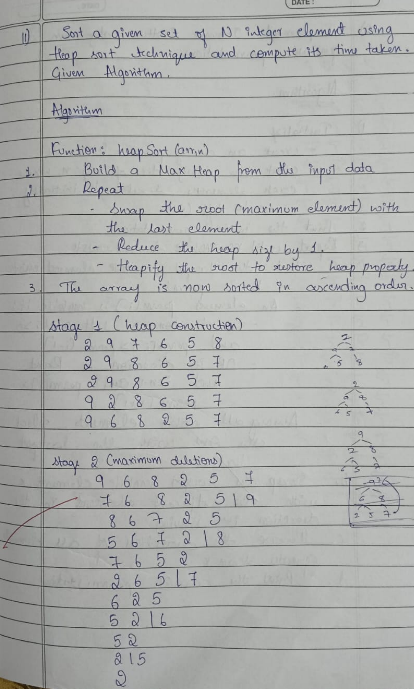 DATE:
11) Sort a given set of N integer element using
Heap sort technique and compute its time taken.
Given Algorithm.
Algorithm
Function: heapSort (arr,n)
1. Build a Max Heap from the input data
2. Repeat
- Swap the root (maximum element) with
the last element
- Reduce the heap size by 1.
- Heapify the root to restore heap property.
3. The array is now sorted in ascending order.
Stage 1 (heap construction)
2 9 7 6 5 8
2 9 8 6 5 7
2 9 8 6 5 7
9 2 8 6 5 7
9 6 8 2 5 7
Stage 2 (maximum deletions)
9 6 8 2 5 7
7 6 8 2 5 | 9
8 6 7 2 5
5 6 7 2 | 8
7 6 5 2
2 6 5 | 7
6 2 5
5 2 | 6
5 2
2 | 5
2